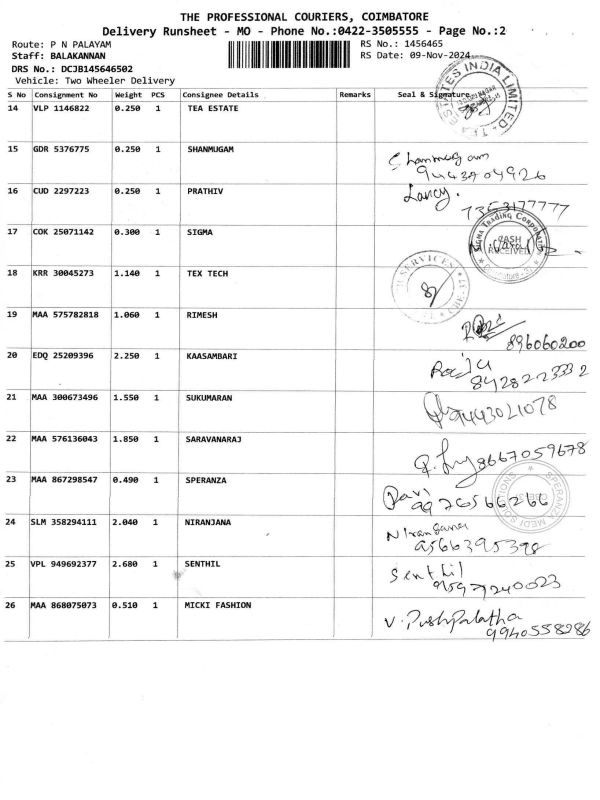 THE PROFESSIONAL COURIERS, COIMBATORE
Delivery Runsheet - MO - Phone No.:0422-3505555 - Page No.:2
Route: P N PALAYAM RS No.: 1456465
Staff: BALAKANNAN RS Date: 09-Nov-2024
DRS No.: DCJB145646502
Vehicle: Two Wheeler Delivery
S No Consignment No Weight PCS Consignee Details Remarks Seal & Signature
14 VLP 1146822 0.250 1 TEA ESTATE
ESTATES INDIA LIMITED
15 GDR 5376775 0.250 1 SHANMUGAM
Shanmugam
9443704926
16 CUD 2297223 0.250 1 PRATHIV
Lancy.
7363177777
17 COK 25071142 0.300 1 SIGMA
SIGMA Trading Corporation
CASH
RECEIVED
18 KRR 30045273 1.140 1 TEX TECH
SERVICES
19 MAA 575782818 1.060 1 RIMESH
896060200
20 EDQ 25209396 2.250 1 KAASAMBARI
8428223332
21 MAA 300673496 1.550 1 SUKUMARAN
9443021078
22 MAA 576136043 1.850 1 SARAVANARAJ
8667059678
23 MAA 867298547 0.490 1 SPERANZA
Ravi
9926566266
SPERANZA MEDI SOLUTIONS
24 SLM 358294111 2.040 1 NIRANJANA
Niranjana
9566395398
25 VPL 949692377 2.680 1 SENTHIL
Senthil
9597240023
26 MAA 868075073 0.510 1 MICKI FASHION
V. Pushpalatha
9940558286